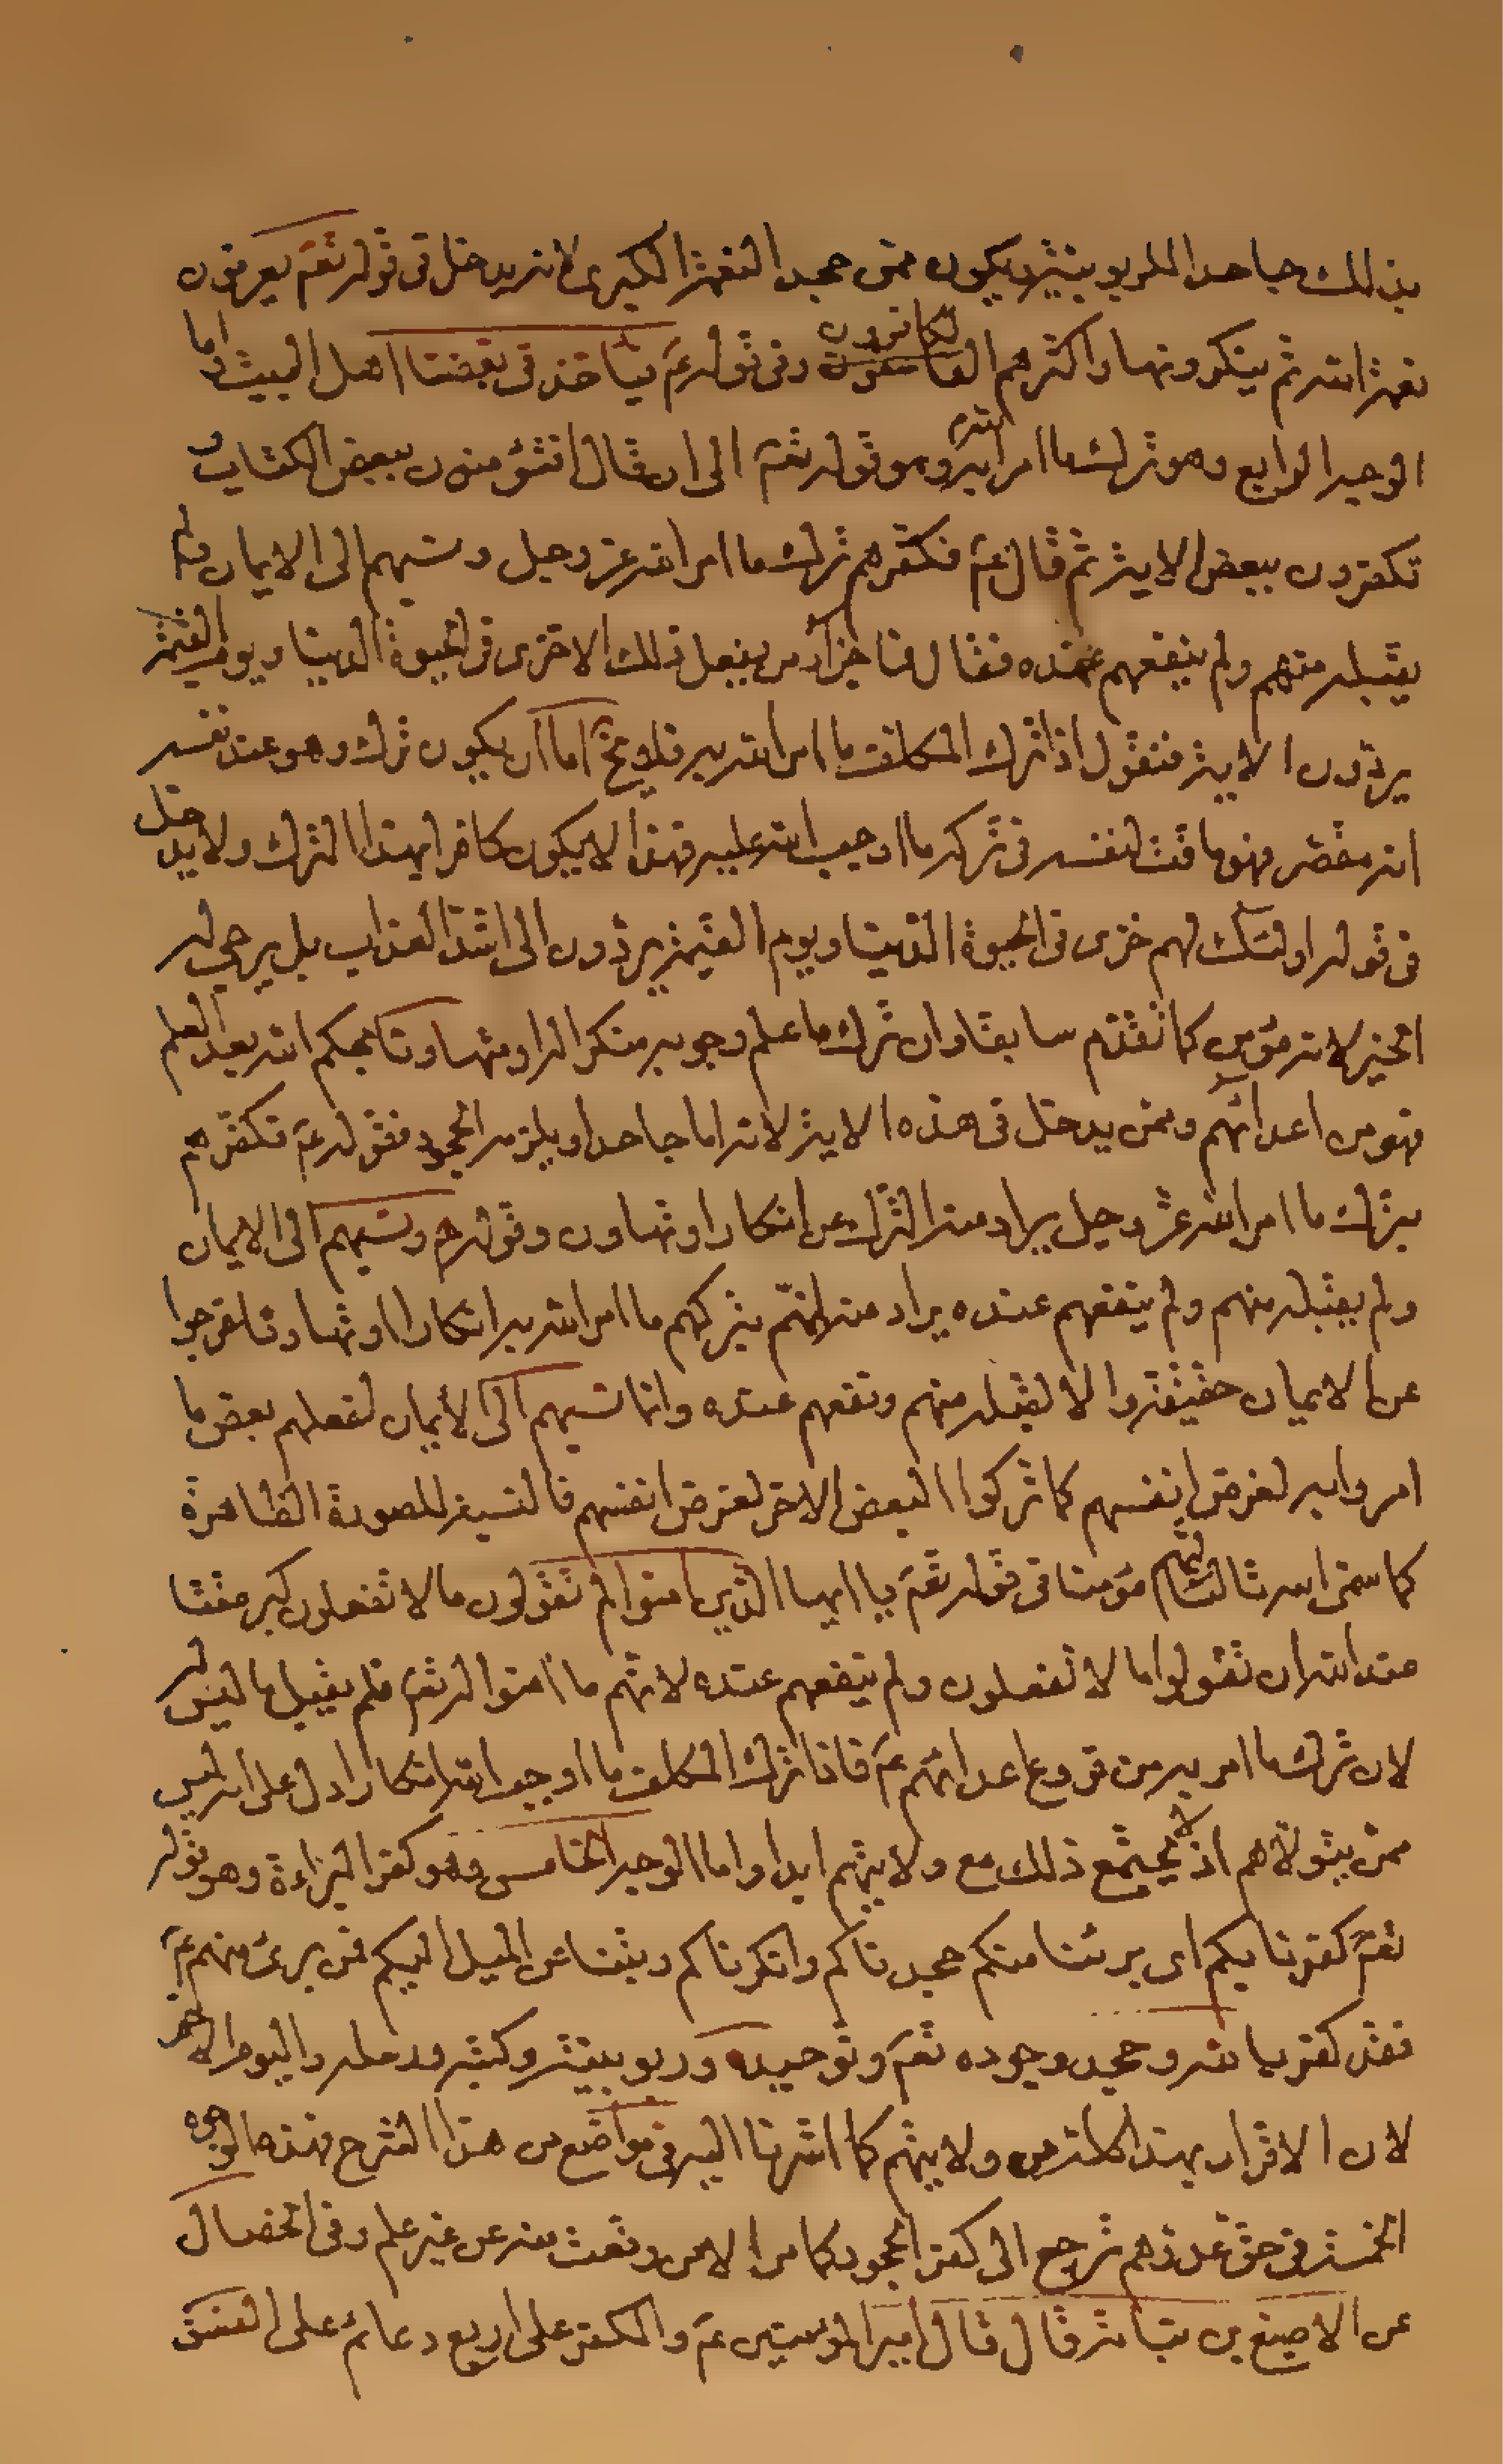 بذلك جاحدا للربوبيّة ويكون ممّن جحد النعمة الكبرى لانه يدخل فى قوله تعۤ يعرفون
نعمة الله ثم ينكرونها واكثرهم الكافرون وفى قوله عۤ يتاخذ فى بغضنا اهل البيت واما
الوجه الرابع وهو ترك ما امر الله به وهو قوله تعۤ الى ان قال افتؤمنون ببعض الكتاب و
تكفرون ببعض الاية ثم قال عۤ فكفّرهم بترك ما امر الله عز وجل ونسبهم الى الايمان ولم
يقبله منهم ولم ينفعهم عنده فقال فما جزآء من يفعل ذلك الا خزى فى الحيوة الدنيا ويوم القيمة
يردّون الاية فنقول اذا ترك المكلف ما امر الله به فلا يخ اما ان يكون ترك وهو عند نفسه
انه مقصّر فهو ماقت لنفسه فى تركه ما اوجب الله عليه فهذا لا يكون كافرا بهذا الترك ولا يدخل
فى قوله اولئك لهم خزى فى الحيوة الدنيا ويوم القيمة يردّون الى اشدّ العذاب بل يرجى له
الخير لانه مؤمن كما تقدّم سابقا وان ترك ما علم وجوبه منكرا له او متهاونا بحكم الله بعد العلم
فهو من اعدائهم وممن يدخل فى هذه الاية لانه اما جاحد او يلزمه الجحود فقوله عۤ فكفّرهم
بترك ما امر الله عز وجل يراد منه الترك عن انكار او تهاون وقوله عۤ ونسبهم الى الايمان
ولم يقبله منهم ولم ينفعهم عنده يراد منه انهّم بتركهم ما امر الله به انكارا او تهاونا خرجوا
عن الايمان حقيقة والا لقبله منهم ونفعهم عنده وانما نسبهم الى الأيمان لفعلهم بعض ما
امروا به لغرض انفسهم كما تركوا البعض الاخر لغرض انفسهم فالنسبة للصورة الظاهرة
كما سمّى الله مؤمنا فى قوله تعۤ يا ايها الذين امنوا لم تقولون ما لا تفعلون كبر مقتا
عند الله ان تقولوا ما لا تفعلون ولم ينفعهم عنده لانهّم ما امنوا له تعۤ فلم يقبل ما ليس له
لان ترك ما امر به من فروع اعدائهم عۤ فاذا ترك المكلف ما اوجب الله انكارا دل على انه ليس
ممّن يتولاّهم اذ لا يجتمع ذلك مع ولايتهم ابدا واما الوجه الخامس وهو كفر البراءة وهو قوله
تعۤ كفرنا بكم اى برئنا منكم جحدناكم وانكرناكم عن الميل اليكم فمن برئ منهم عۤ
فقد كفر بالله وجحد وجوده تعۤ وتوحيده وربوبيته وكتبه ورسله واليوم الاخر
لان الاقرار بهذا كله من ولايتهم كما اشرنا اليه فى مواضع من هذا الشرح فهذه الوجوه
الخمسة فى حق عدوّهم ترجع الى كفر الجحود كما مرّ الا من وقعت منه عن غير علم وفى الخصال
عن الاصبغ بن نباتة قال قال امير المؤمنين عۤ والكفر على اربع دعائم على الفسق